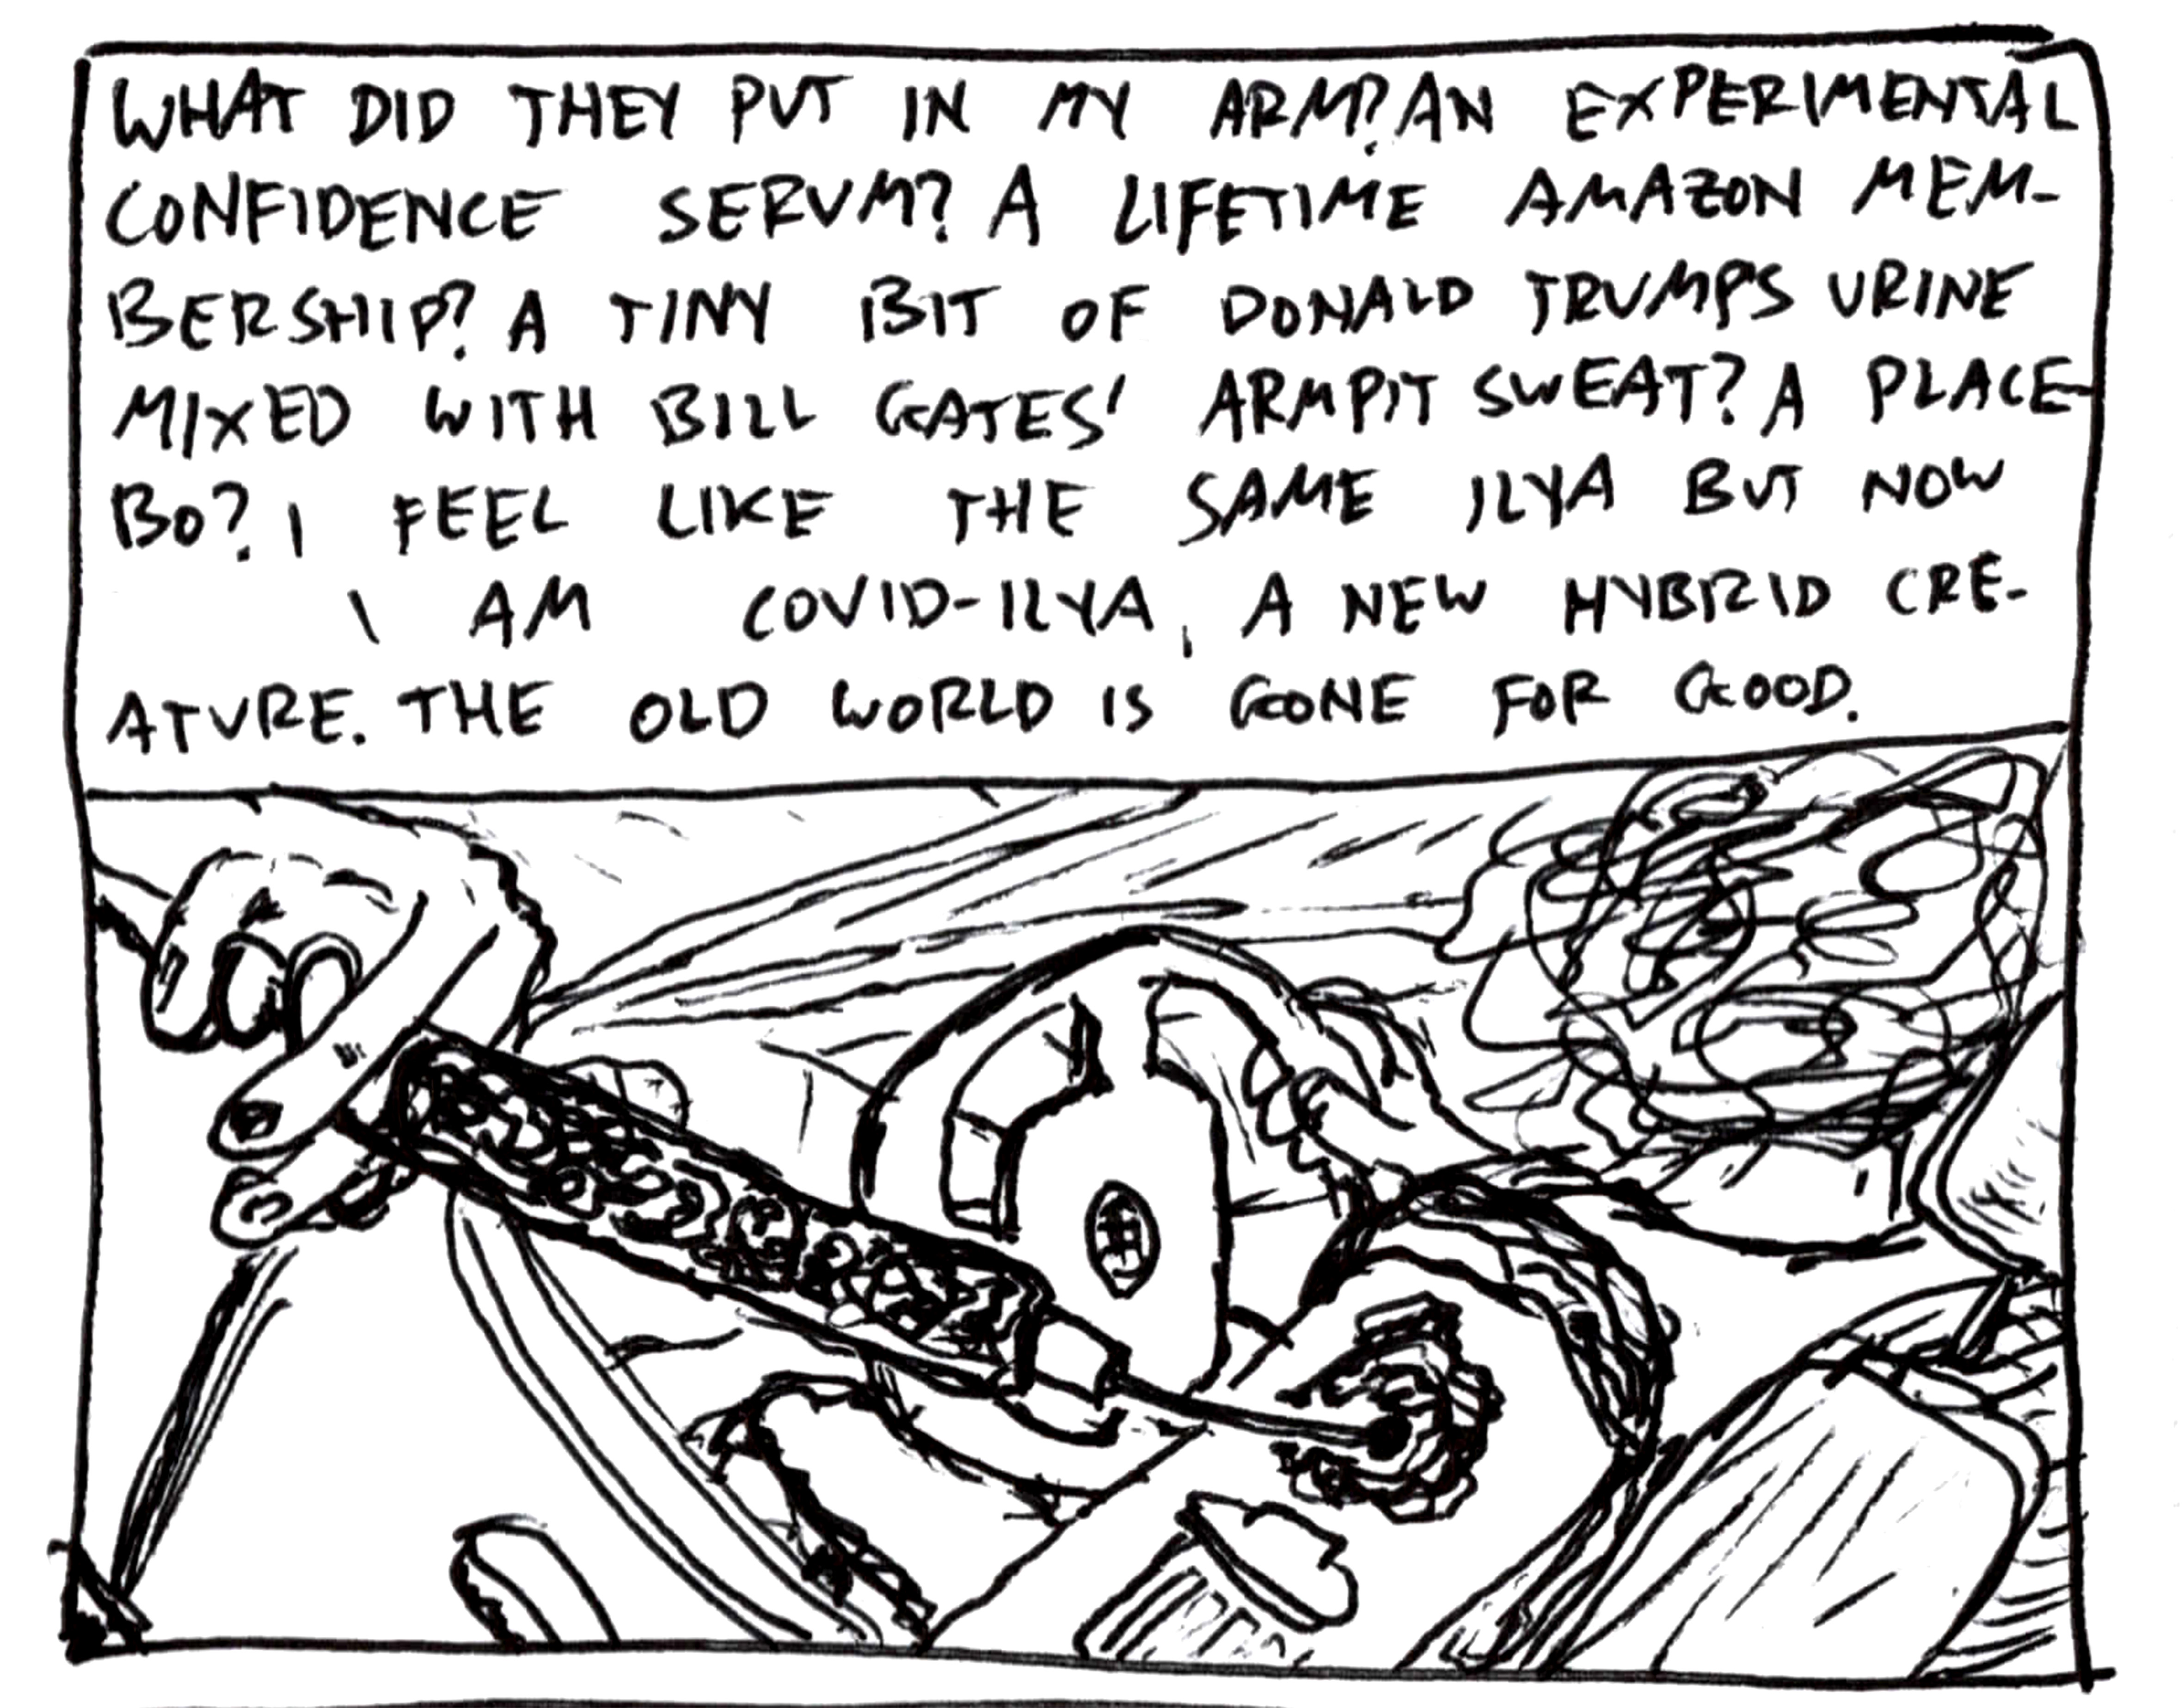 WHAT DID THEY PUT IN MY ARM? AN EXPERIMENTAL
CONFIDENCE SERUM? A LIFETIME AMAZON MEM-
BERSHIP? A TINY BIT OF DONALD TRUMP'S URINE
MIXED WITH BILL GATES' ARMPIT SWEAT? A PLACE-
BO? I FEEL LIKE THE SAME ILYA BUT NOW
I AM COVID-ILYA, A NEW HYBRID CRE-
ATURE. THE OLD WORLD IS GONE FOR GOOD.